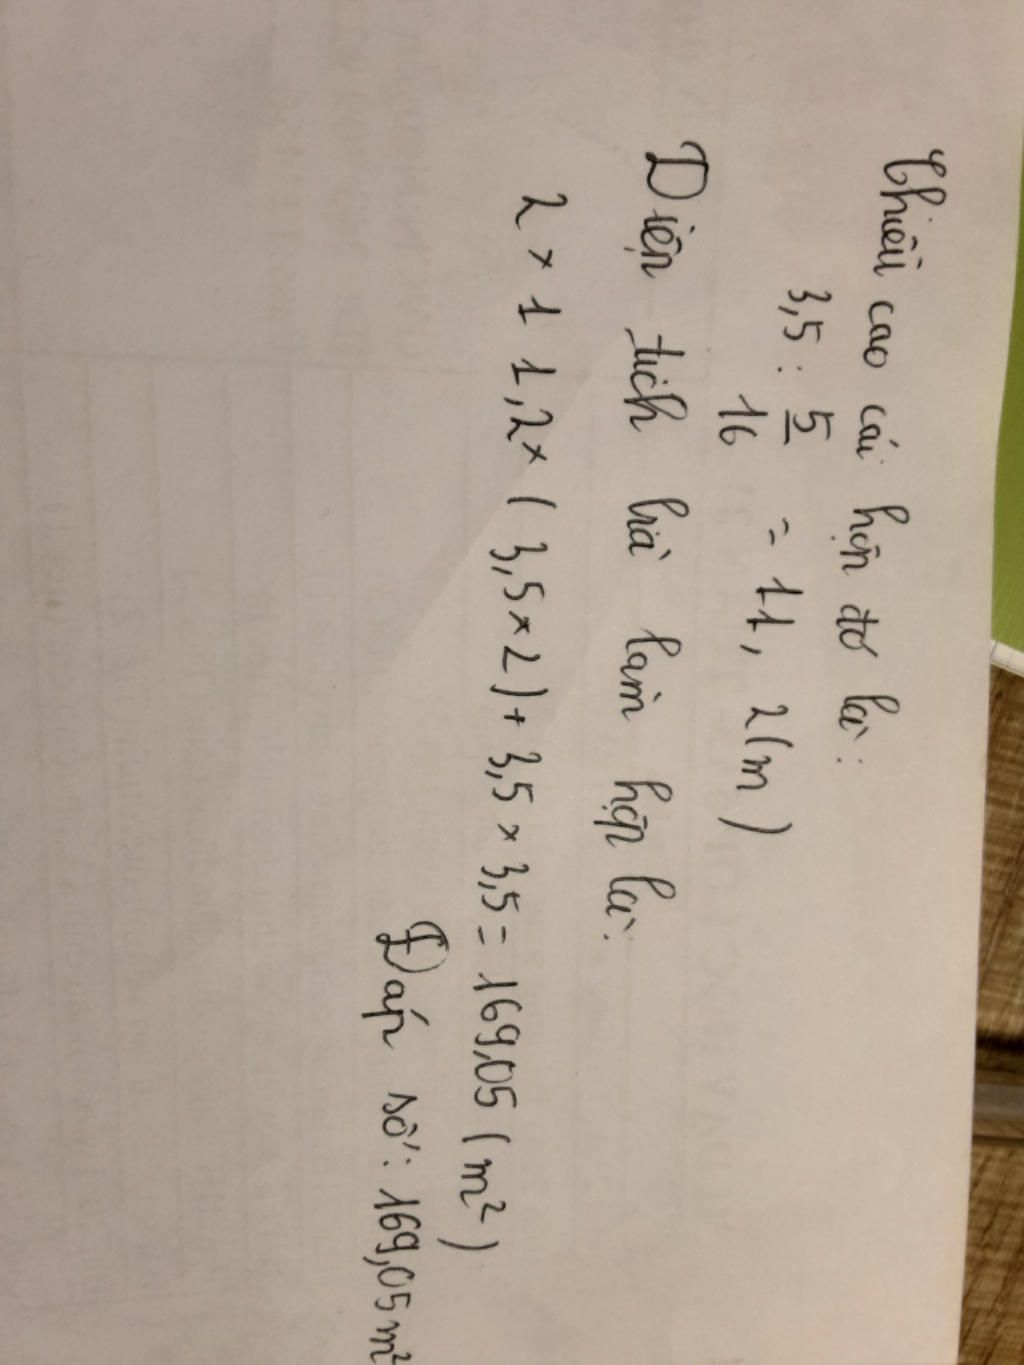 Chiều cao cái hộp đó là:
3,5 : 5/16 = 11,2 (m)
Diện tích bìa làm hộp là:
2 × 11,2 × (3,5 × 2) + 3,5 × 3,5 = 169,05 (m²)
Đáp số: 169,05 m²